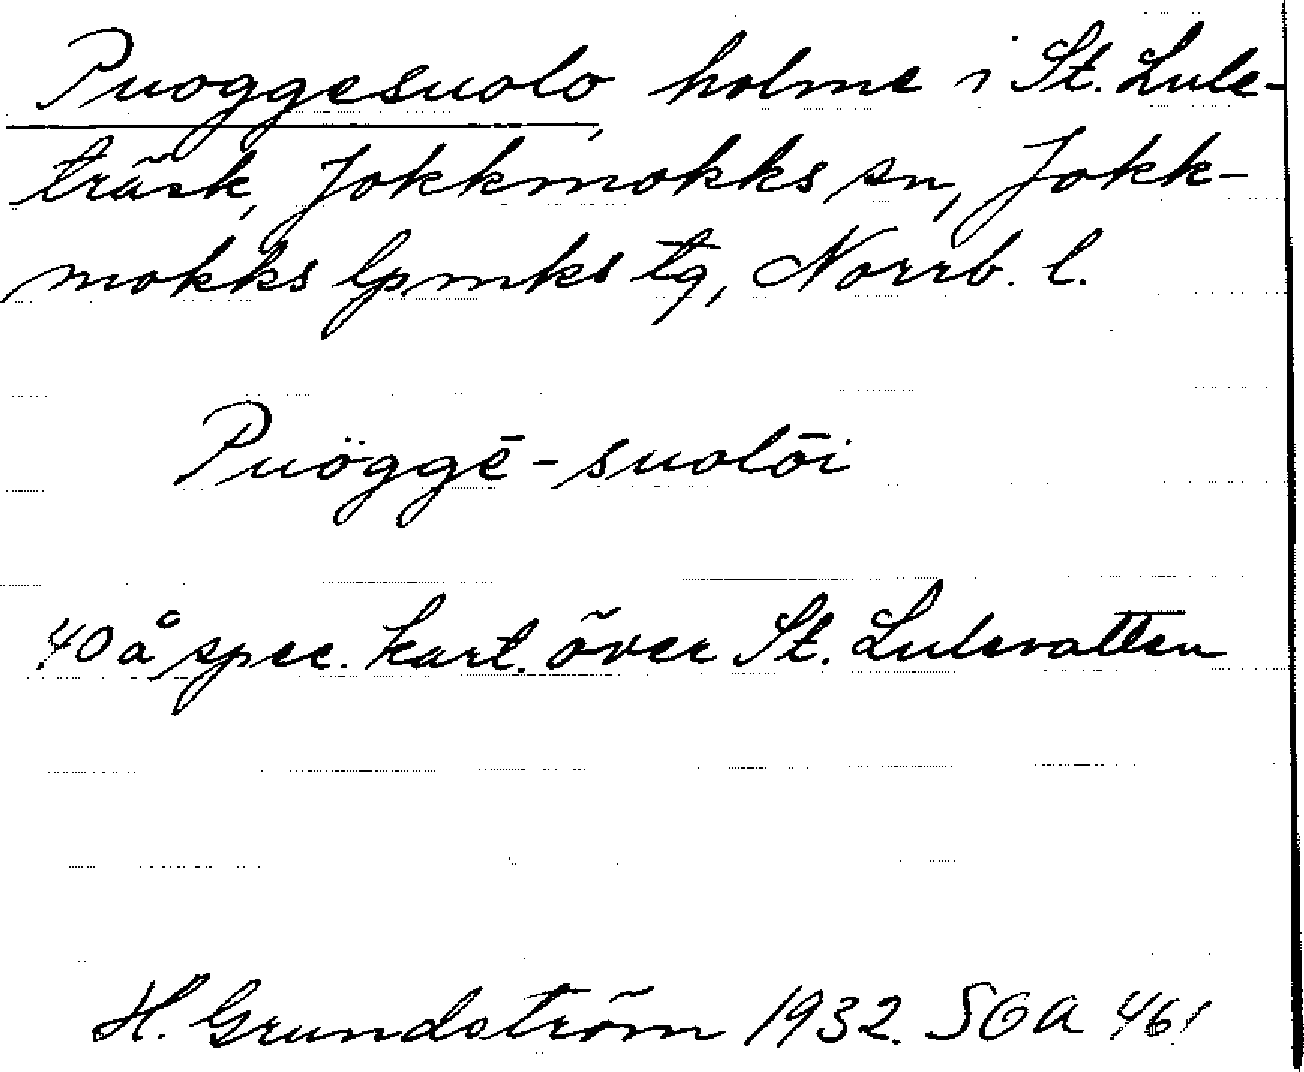 Puoggesuolo, holme i St. Lule-
träsk, Jokkmokks sn, Jokk-
mokks lpmks tg, Norrb. l.
Puöggē-suolōi
40 å spec. kart. över St. Lulevatten
H. Grundström 1932. SOA 461